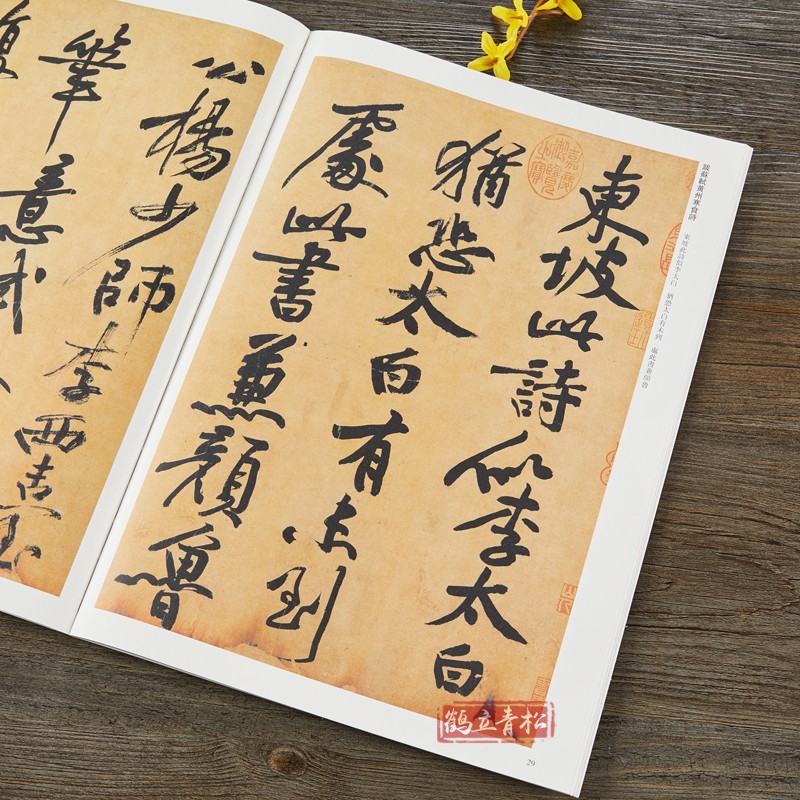 跋蘇軾黃州寒食詩
東坡此詩似李太白 猶恐太白有未到 處此書兼顏魯
嘉慶御覽之寶
東坡此詩似李太白
猶恐太白有未到
處此書兼顏魯
公楊少師李西臺
筆意試
復
鶴立青松
29